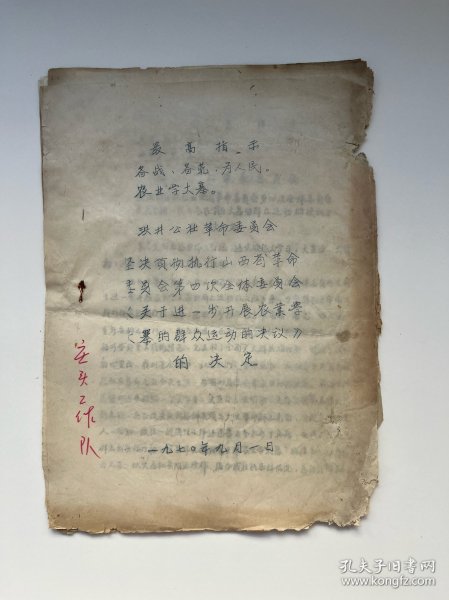 最高指示
备战、备荒、为人民。
农业学大寨。
井公社革命委员会
坚决贯彻执行山西省革命
委员会第四次全体委员会
《关于进一步开展农业学大
寨的群众运动的决议》
的决定
一九七〇年九月一日
工作队
孔夫子旧书网
www.kongfz.com